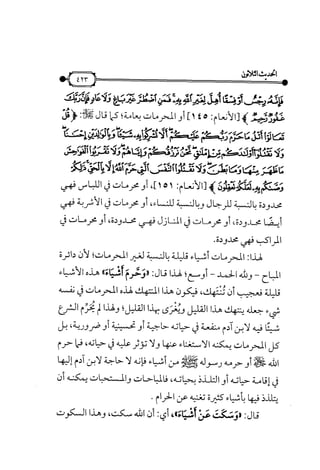 الحديث الثلاثون
٤٢٣
فَإِنَّهُ رِجْسٌ أَوْ فِسْقًا أُهِلَّ لِغَيْرِ اللَّهِ بِهِ فَمَنِ اضْطُرَّ غَيْرَ بَاغٍ وَلَا عَادٍ فَإِنَّ رَبَّكَ
غَفُورٌ رَحِيمٌ﴾ [الأنعام: ١٤٥] أو المحرمات بعامة؛ كما قال ﷺ: ﴿قُلْ
تَعَالَوْا أَتْلُ مَا حَرَّمَ رَبُّكُمْ عَلَيْكُمْ أَلَّا تُشْرِكُوا بِهِ شَيْئًا وَبِالْوَالِدَيْنِ إِحْسَانًا
وَلَا تَقْتُلُوا أَوْلَادَكُمْ مِنْ إِمْلَاقٍ نَحْنُ نَرْزُقُكُمْ وَإِيَّاهُمْ وَلَا تَقْرَبُوا الْفَوَاحِشَ
مَا ظَهَرَ مِنْهَا وَمَا بَطَنَ وَلَا تَقْتُلُوا النَّفْسَ الَّتِي حَرَّمَ اللَّهُ إِلَّا بِالْحَقِّ ذَلِكُمْ
وَصَّاكُمْ بِهِ لَعَلَّكُمْ تَعْقِلُونَ﴾ [الأنعام: ١٥١]، أو محرمات في اللباس فهي
محدودة بالنسبة للرجال وبالنسبة للنساء، أو محرمات في الأشربة فهي
أيضًا محدودة، أو محرمات في المنازل فهي محدودة، أو محرمات في
المراكب فهي محدودة.
لهذا: المحرمات أشياء قليلة بالنسبة لغير المحرمات؛ لأن دائرة
المباح - ولله الحمد - أوسع؛ لهذا قال: «وَحَرَّمَ أَشْيَاءَ» هذه الأشياء
قليلة فعجيب أن تُنْتَهك، فيكون هذا المنتهك لهذه المحرمات في نفسه
شيء جعله ينتهك هذا القليل ويُغْرَى بهذا القليل؛ ولهذا لم يُحَرِّم الشرع
شيئًا فيه لابن آدم منفعة في حياته حاجية أو تحسينية أو ضرورية، بل
كل المحرمات يمكنه الاستغناء عنها ولا تؤثر عليه في حياته، فما حرم
الله ﷺ أو حرمه رسوله ﷺ من أشياء فإنه لا حاجة لابن آدم إليها
في إقامة حياته أو التلذذ بحياته، فالمباحات والمستحبات يمكنه أن
يتلذذ فيها بأشياء كثيرة تغنيه عن الحرام.
قال: «وَسَكَتَ عَنْ أَشْيَاءَ»، أي: أن الله سكت، وهذا السكوت